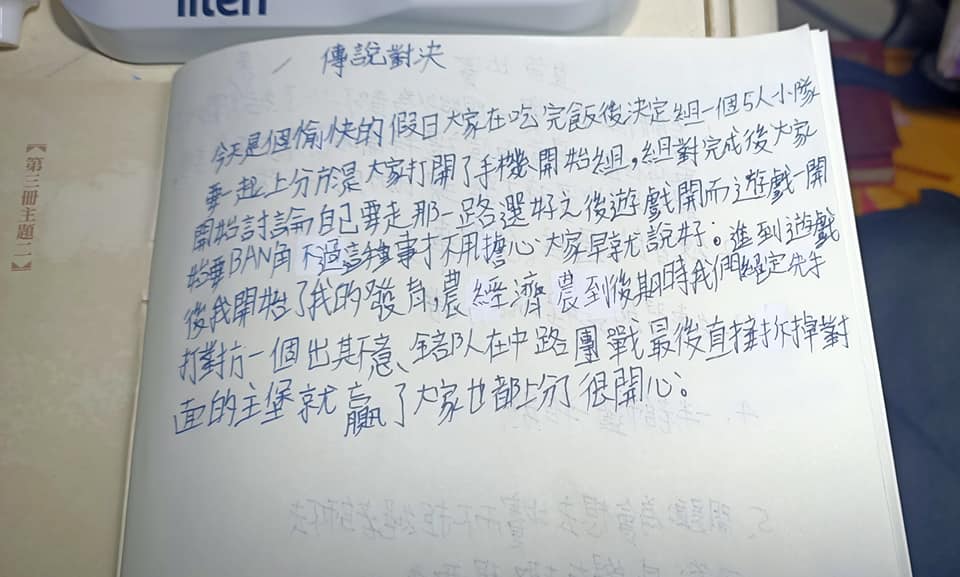 傳說對決
今天是個愉快的假日大家在吃完飯後決定組一個5人小隊
要一起上分於是大家打開了手機開始組,組對完成後大家
開始討論自己要走那一路選好之後遊戲開而遊戲一開
始要BAN角不過這種事打不用擔心大家早就說好。進到遊戲
後我開始了我的發育,農經濟農到後期時我們決定先手
打對方一個出其不意、全部队在中路團戰最後直接拆掉對
面的主堡就贏了大家也都上分了很開心。
【第三冊主題二】